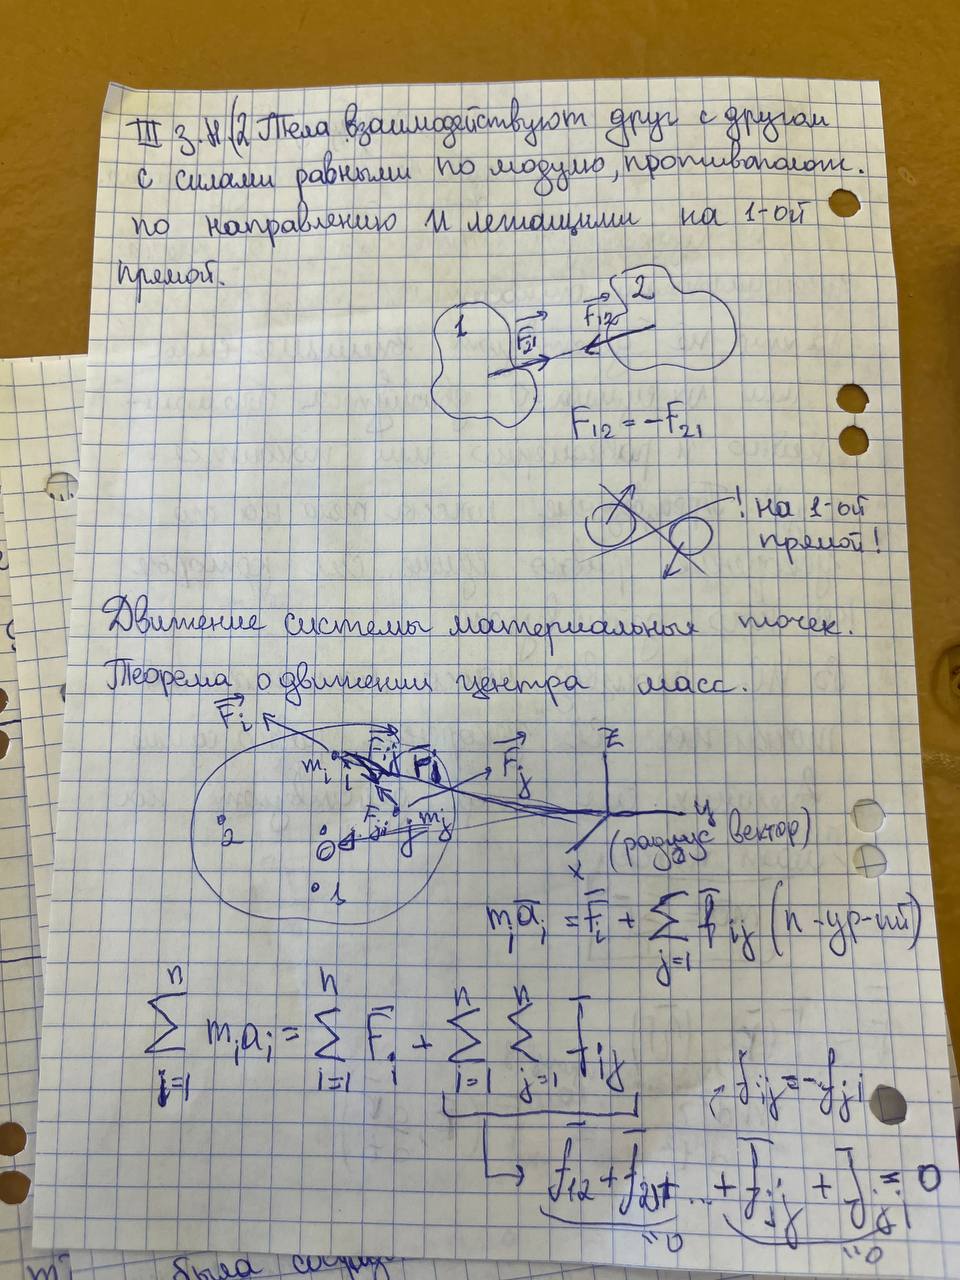 III З.Н.(2 Тела взаимодействуют друг с другом
с силами равными по модулю, противополож.
по направлению и лежащими на 1-ой
прямой.
1
2
F₂₁
F₁₂
F₁₂ = -F₂₁
! на 1-ой
прямой!
Движение системы материальных точек.
Теорема о движении центра масс.
Fᵢ
mᵢ
i
Fᵢⱼ
Fⱼᵢ
j
mⱼ
Fⱼ
2
0
1
z
y
x
(радиус вектор)
mᵢāᵢ = F̄ᵢ + Σ j=1 f̄ᵢⱼ (n - ур-ий)
Σ i=1 n mᵢaᵢ = Σ i=1 n F̄ᵢ + Σ i=1 n Σ j=1 n f̄ᵢⱼ
fᵢⱼ = -fⱼᵢ
f̄₁₂ + f̄₂₁ + ... + f̄ᵢⱼ + f̄ⱼᵢ = 0
0
0
была